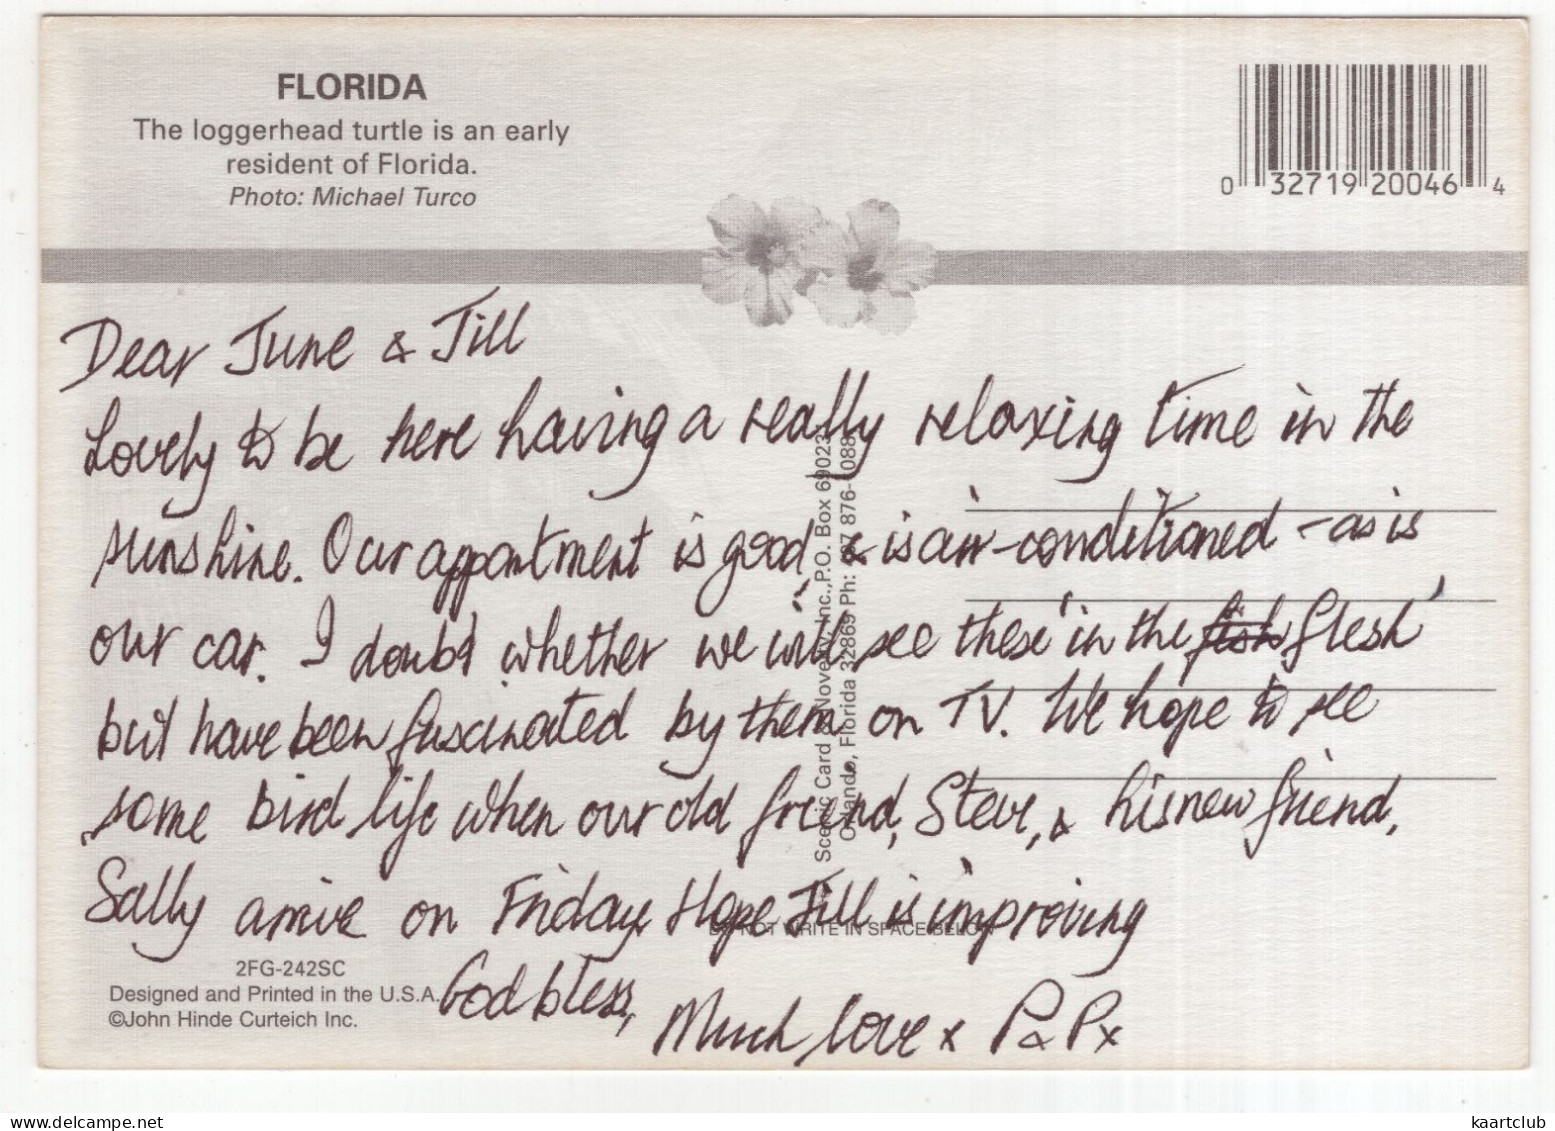 FLORIDA
The loggerhead turtle is an early
resident of Florida.
Photo: Michael Turco
0 32719 20046 4
Dear June & Jill
Lovely to be here having a really relaxing time in the
sunshine. Our appartment is good & is air-conditioned - as is
our car. I doubt whether we will see these 'in the fish flesh'
but have been fascinated by them on TV. We hope to see
some bird life when our old friend, Steve, & his new friend,
Sally arrive on Friday. Hope Jill is improving
God bless,
Much love x P & P x
Scenic Card & Novelty Inc., P.O. Box 69023
Orlando, Florida 32869 Ph: 876-
DO NOT WRITE IN SPACE BELOW
2FG-242SC
Designed and Printed in the U.S.A.
©John Hinde Curteich Inc.
delcampe.net
kaartclub